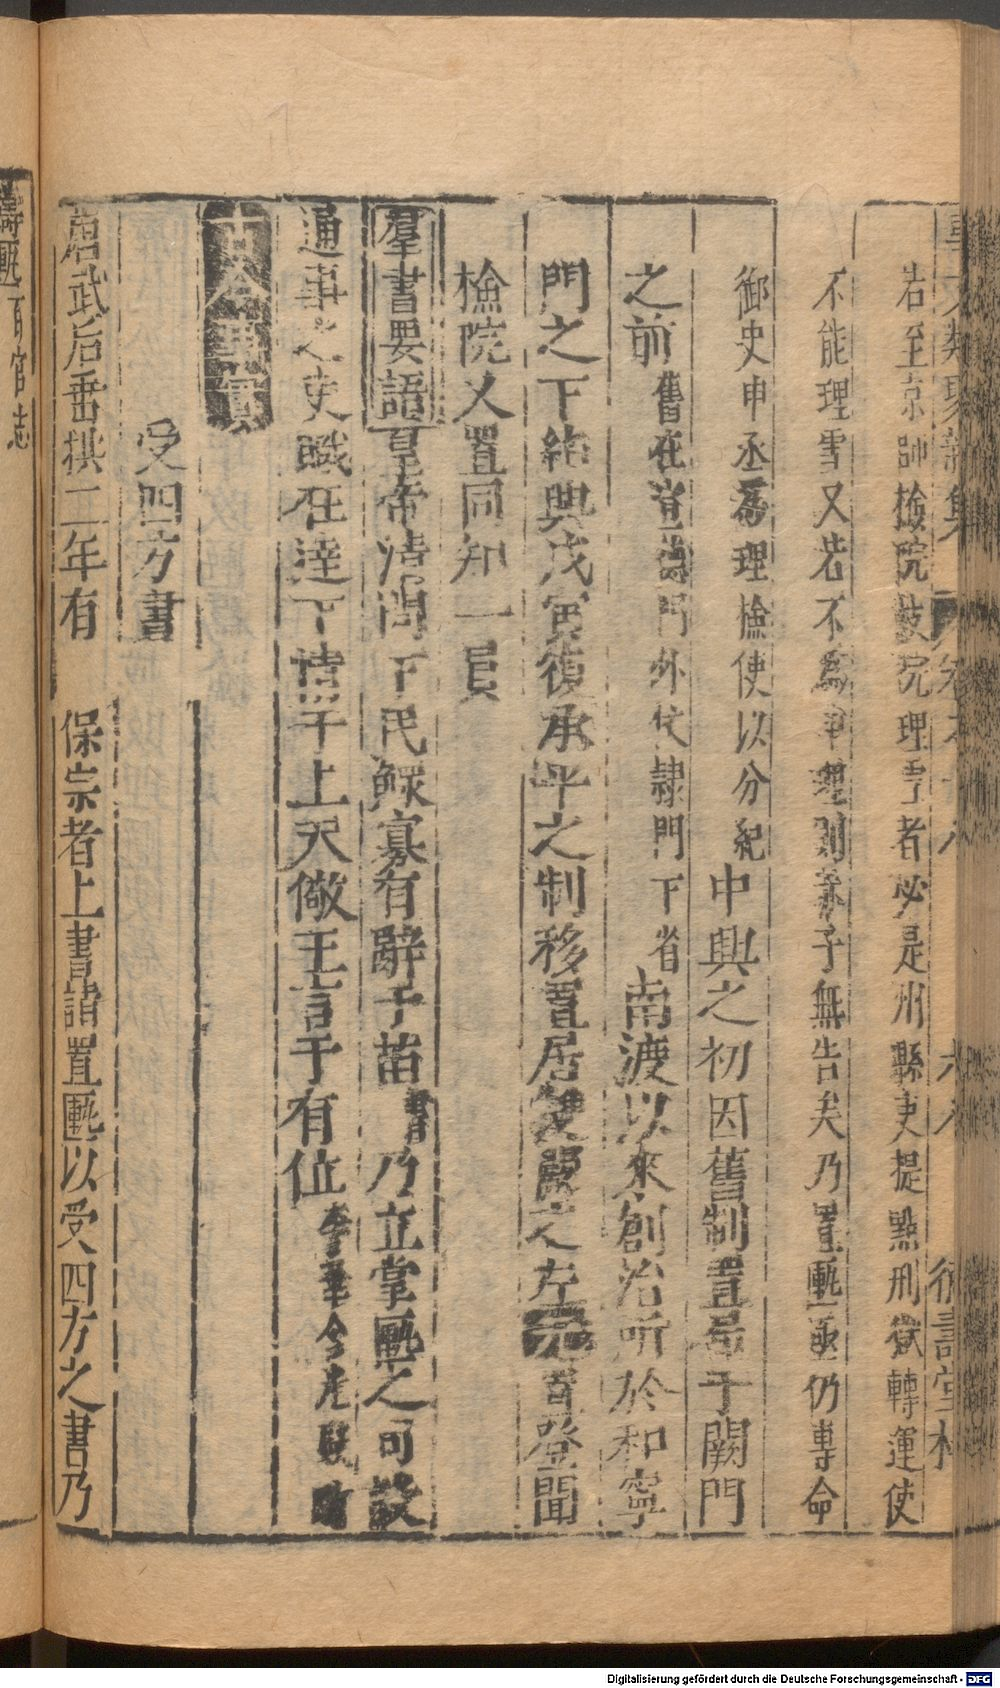 若至京師檢院鼓院理雪者必是州縣吏提點刑獄轉運使
不能理雪又若不爲申理則赤子無告矣乃置匭函仍專命
御史中丞爲理檢使以分紀中興之初因舊制置局于闕門
之前舊在宣德門外仗隸門下省南渡以來創治所於和寧
門之下紹興戊寅復承平之制移置居雙闕之左元置登聞
檢院又置同知一員
羣書要語皇帝清問下民鰥寡有辭于苗書乃立掌匭之司設
通事之吏職在達下情于上天儆王言于有位李華
古今事實
受四方書
唐武后垂拱二年有 保宗者上書請置匭以受四方之書乃
鑄匭百官志
Digitalisierung gefördert durch die Deutsche Forschungsgemeinschaft - DFG